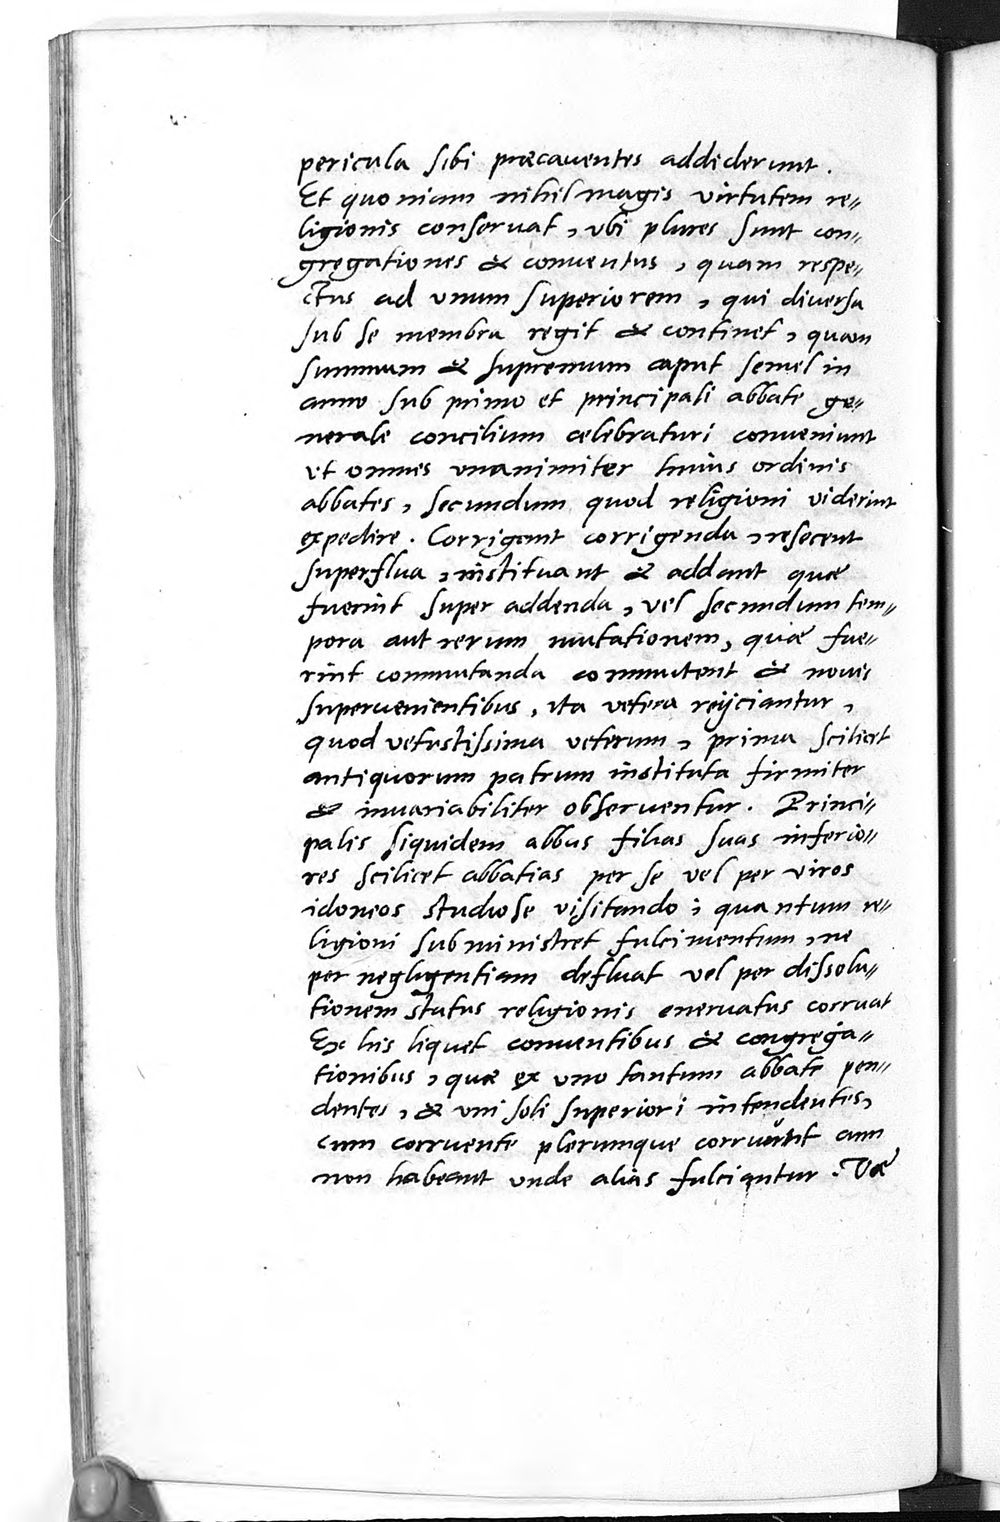 pericula sibi præcauentes addiderunt.
Et quoniam nihil magis virtutem re„
ligionis conseruat, vbi plures sunt con„
gregationes & conuentus, quam respe„
ctus ad vnum superiorem, qui diuersa
sub se membra regit & continet, quam
summum & supremum caput semel in
anno sub primo et principali abbate ge„
nerale concilium celebraturi conueniunt
vt omnes vnanimiter huius ordinis
abbates, secundum quod religioni viderint
expedire. Corrigant corrigenda, resecent
superflua, instituant & addant quæ
fuerint super addenda, vel secundum tem„
pora aut rerum mutationem, quæ fue„
rint commutanda commutent & nouis
superuenientibus, ita vetera reijciantur,
quod vetustissima veterum, prima scilicet
antiquorum patrum instituta firmiter
& inuariabiliter obseruentur. Princi„
palis siquidem abbas filias suas inferio„
res scilicet abbatias per se vel per viros
idoneos studiose visitando; quantum re„
ligioni subministret fulcimentum, ne
per negligentiam defluat vel per dissolu„
tionem status religionis eneruatus corruat
Ex his liquet conuentibus & congrega„
tionibus, quæ ex vno tantum abbate pen„
dentes, & vni soli superiori intendentes,
cum corruente plerumque corruunt cum
non habeant vnde alias fulciantur. Væ